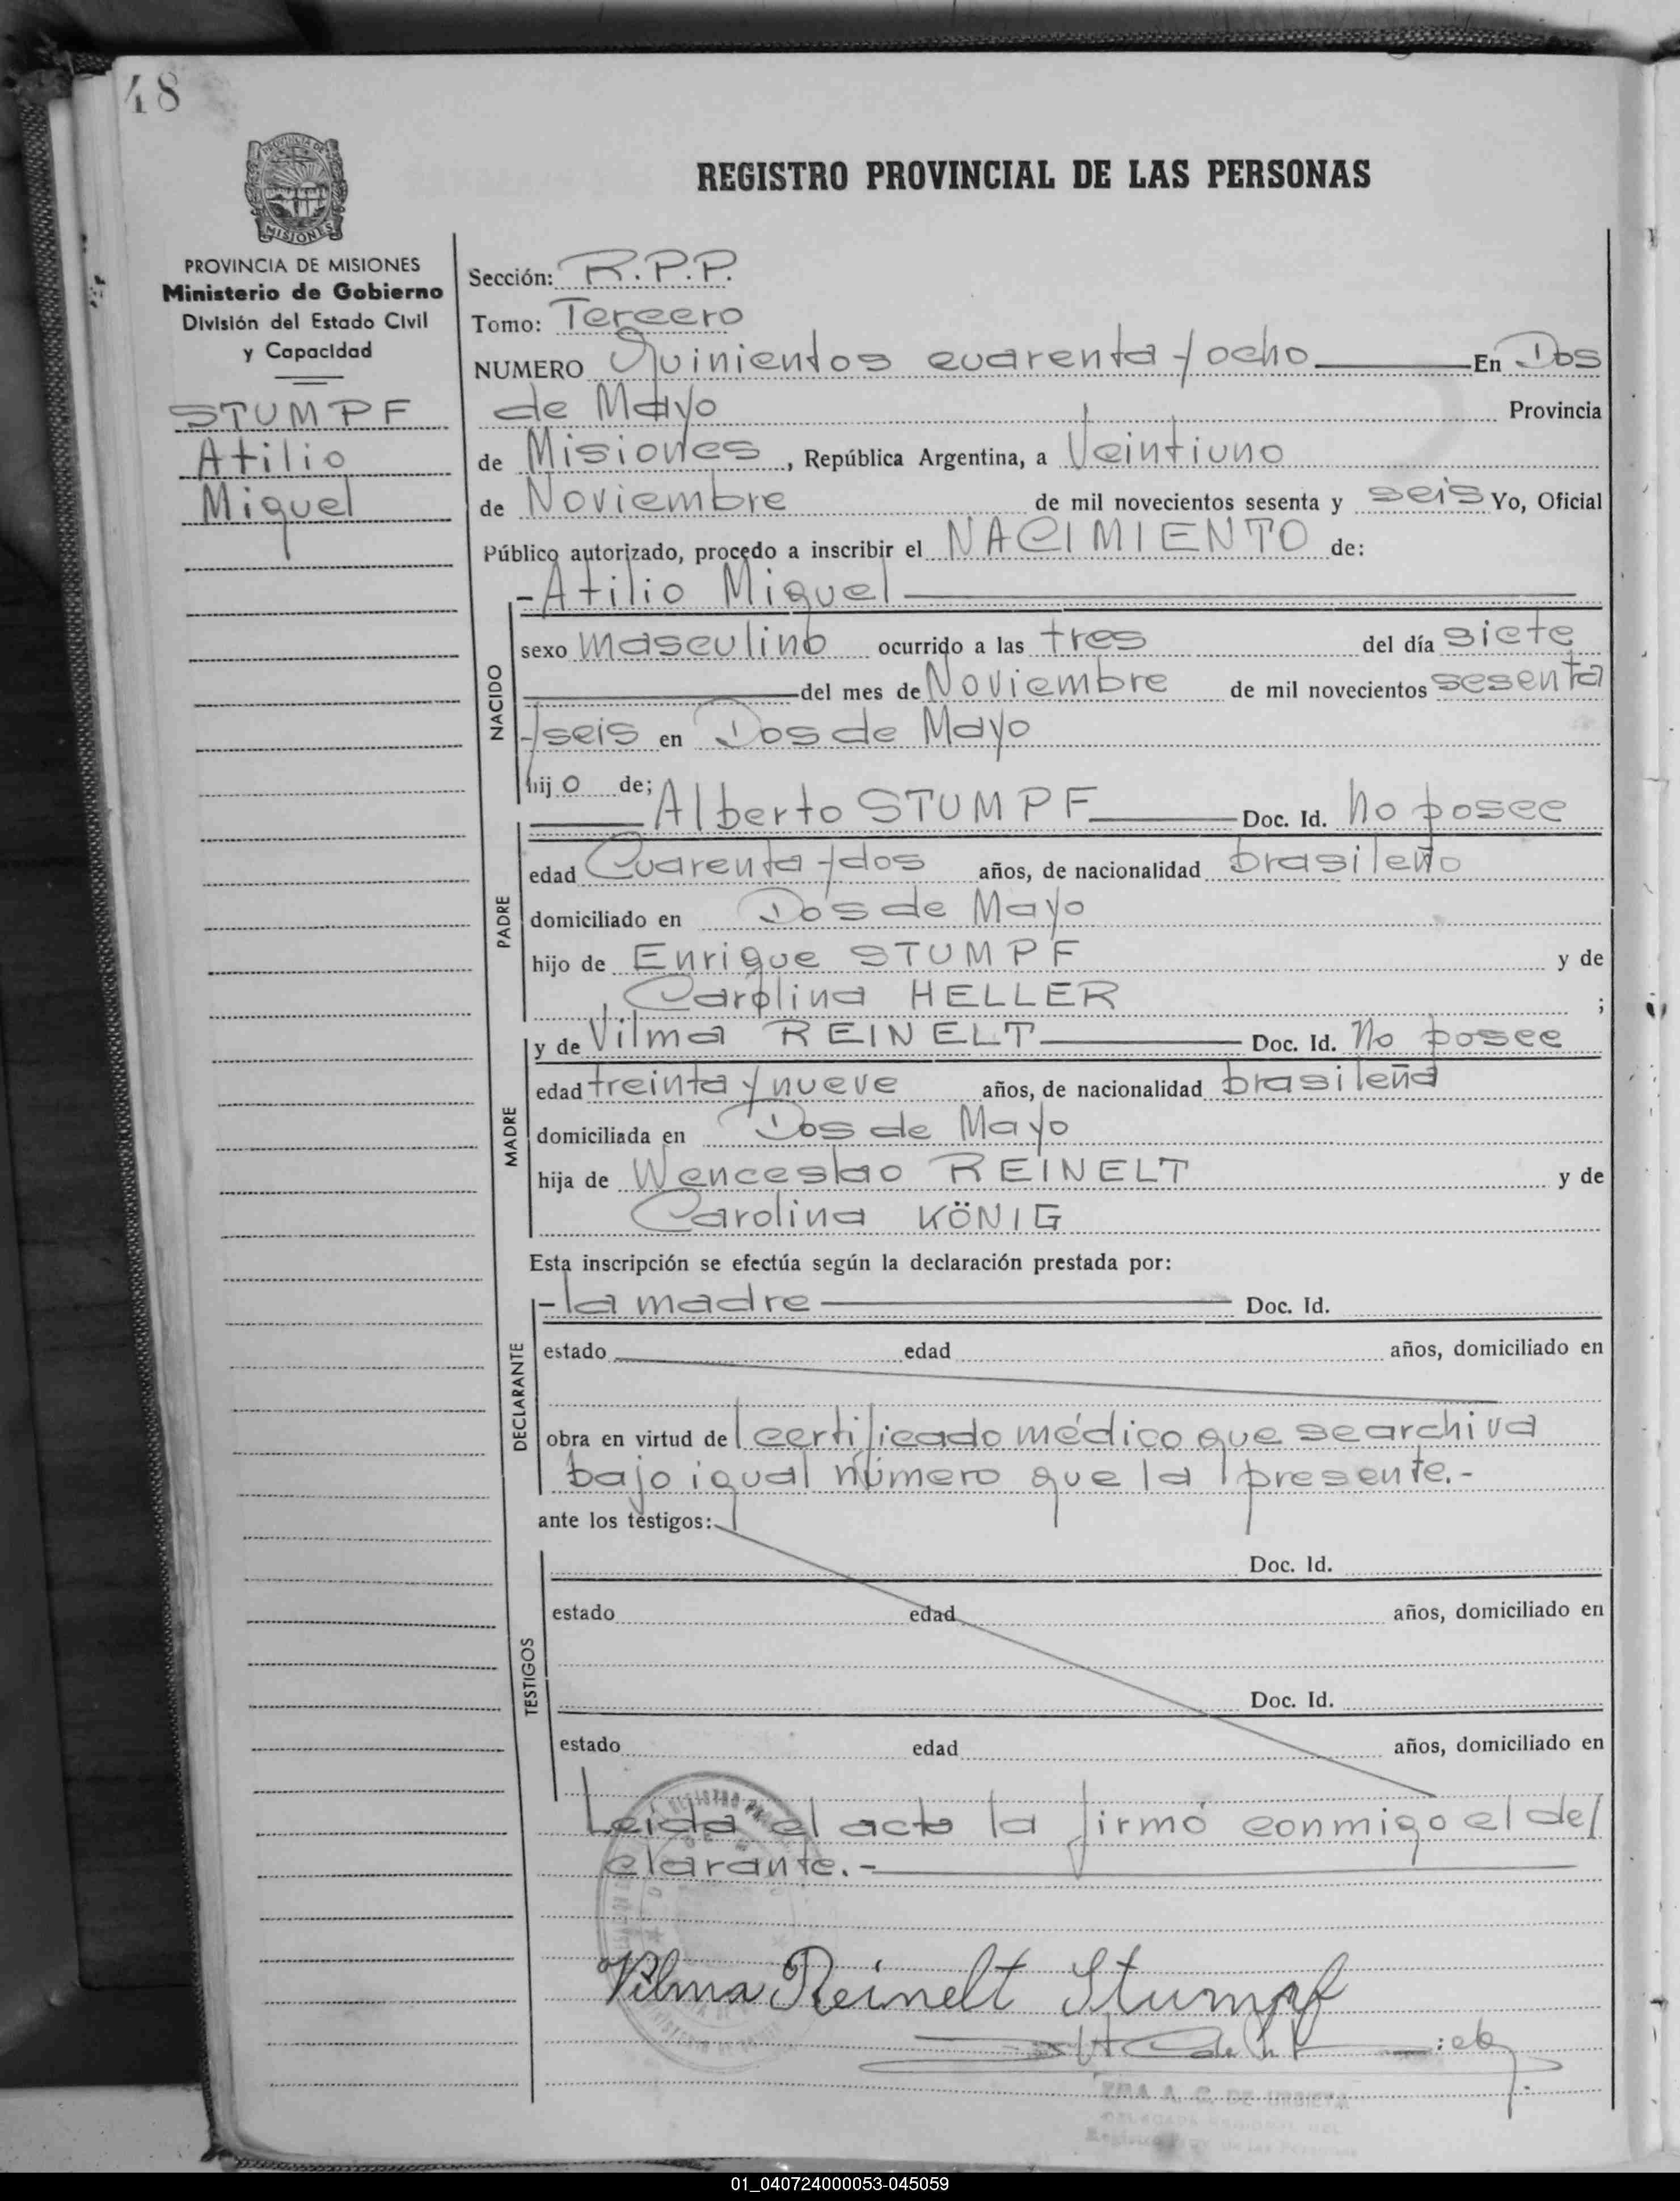 48
MISIONES
PROVINCIA DE MISIONES
Ministerio de Gobierno
División del Estado Civil
y Capacidad
STUMPF
Atilio
Miguel
REGISTRO PROVINCIAL DE LAS PERSONAS
Sección: R.P.P.
Tomo: Tercero
NUMERO Quinientos cuarenta y ocho En Dos
de Mayo Provincia
de Misiones, República Argentina, a Veintiuno
de Noviembre de mil novecientos sesenta y seis Yo, Oficial
Público autorizado, procedo a inscribir el NACIMIENTO de:
- Atilio Miguel
NACIDO
sexo masculino ocurrido a las tres del día siete
del mes de Noviembre de mil novecientos sesenta
y seis en Dos de Mayo
hijo de;
PADRE
Alberto STUMPF Doc. Id. No posee
edad Cuarenta y dos años, de nacionalidad brasileño
domiciliado en Dos de Mayo
hijo de Enrique STUMPF y de
Carolina HELLER ;
MADRE
y de Vilma REINELT Doc. Id. No posee
edad treinta y nueve años, de nacionalidad brasileña
domiciliada en Dos de Mayo
hija de Wenceslao REINELT y de
Carolina KÖNIG
Esta inscripción se efectúa según la declaración prestada por:
DECLARANTE
- la madre Doc. Id.
estado edad años, domiciliado en
obra en virtud de certificado médico que se archiva
bajo igual número que la presente.-
ante los testigos:
TESTIGOS
Doc. Id.
estado edad años, domiciliado en
Doc. Id.
estado edad años, domiciliado en
Leída el acta la firmó conmigo el de/
clarante.-
Vilma Reinelt Stumpf
A. C. DE URBIETA
01_040724000053-045059